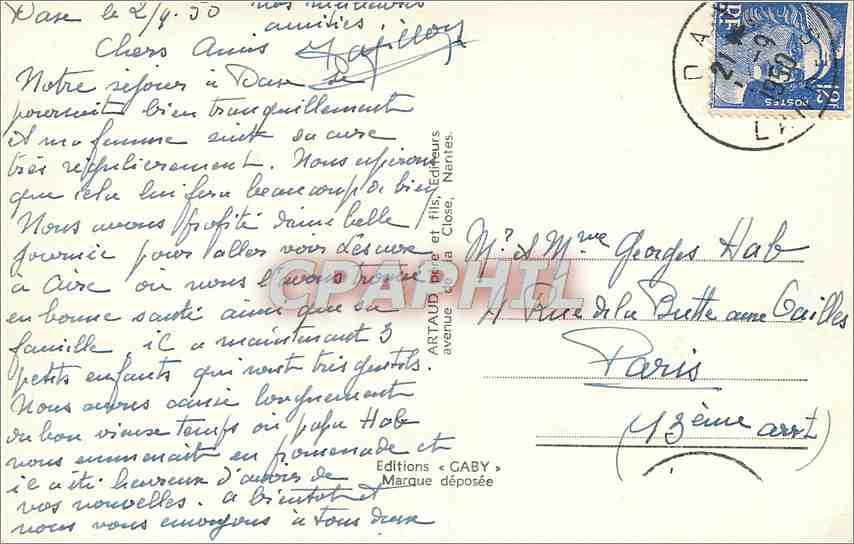 Dax le 2/9.50
Chers Amis
Notre séjour à Dax se
poursuit bien tranquillement
et ma femme suit sa cure
très régulièrement. Nous espérons
que cela lui fera beaucoup de bien
Nous avons profité d'une belle
journée pour aller voir
à Aire où nous l'avons trouvé
en bonne santé ainsi que sa
famille, il a maintenant 3
petits enfants qui sont très gentils.
Nous avons causé longuement
du bon vieux temps où papa Hab
nous emmenait en promenade et
il a été heureux d'avoir de
vos nouvelles. a bientôt et
nous vous envoyons à tous deux
nos meilleures
amitiés.
ARTAUD père et fils, Editeurs
avenue de la Close, Nantes.
Editions « GABY »
Marque déposée
CPARPHIL
DAX
21
-9
1950
POSTES
12F
Mr & Mme Georges Hab
4 Rue de la Butte aux Cailles
Paris
(13ème arrt)